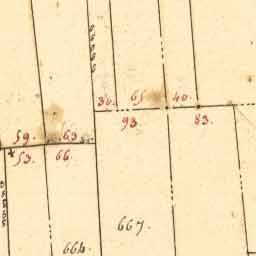 30. 65 40.
93. 83.
59. 63.
53. 66.
667.
664.